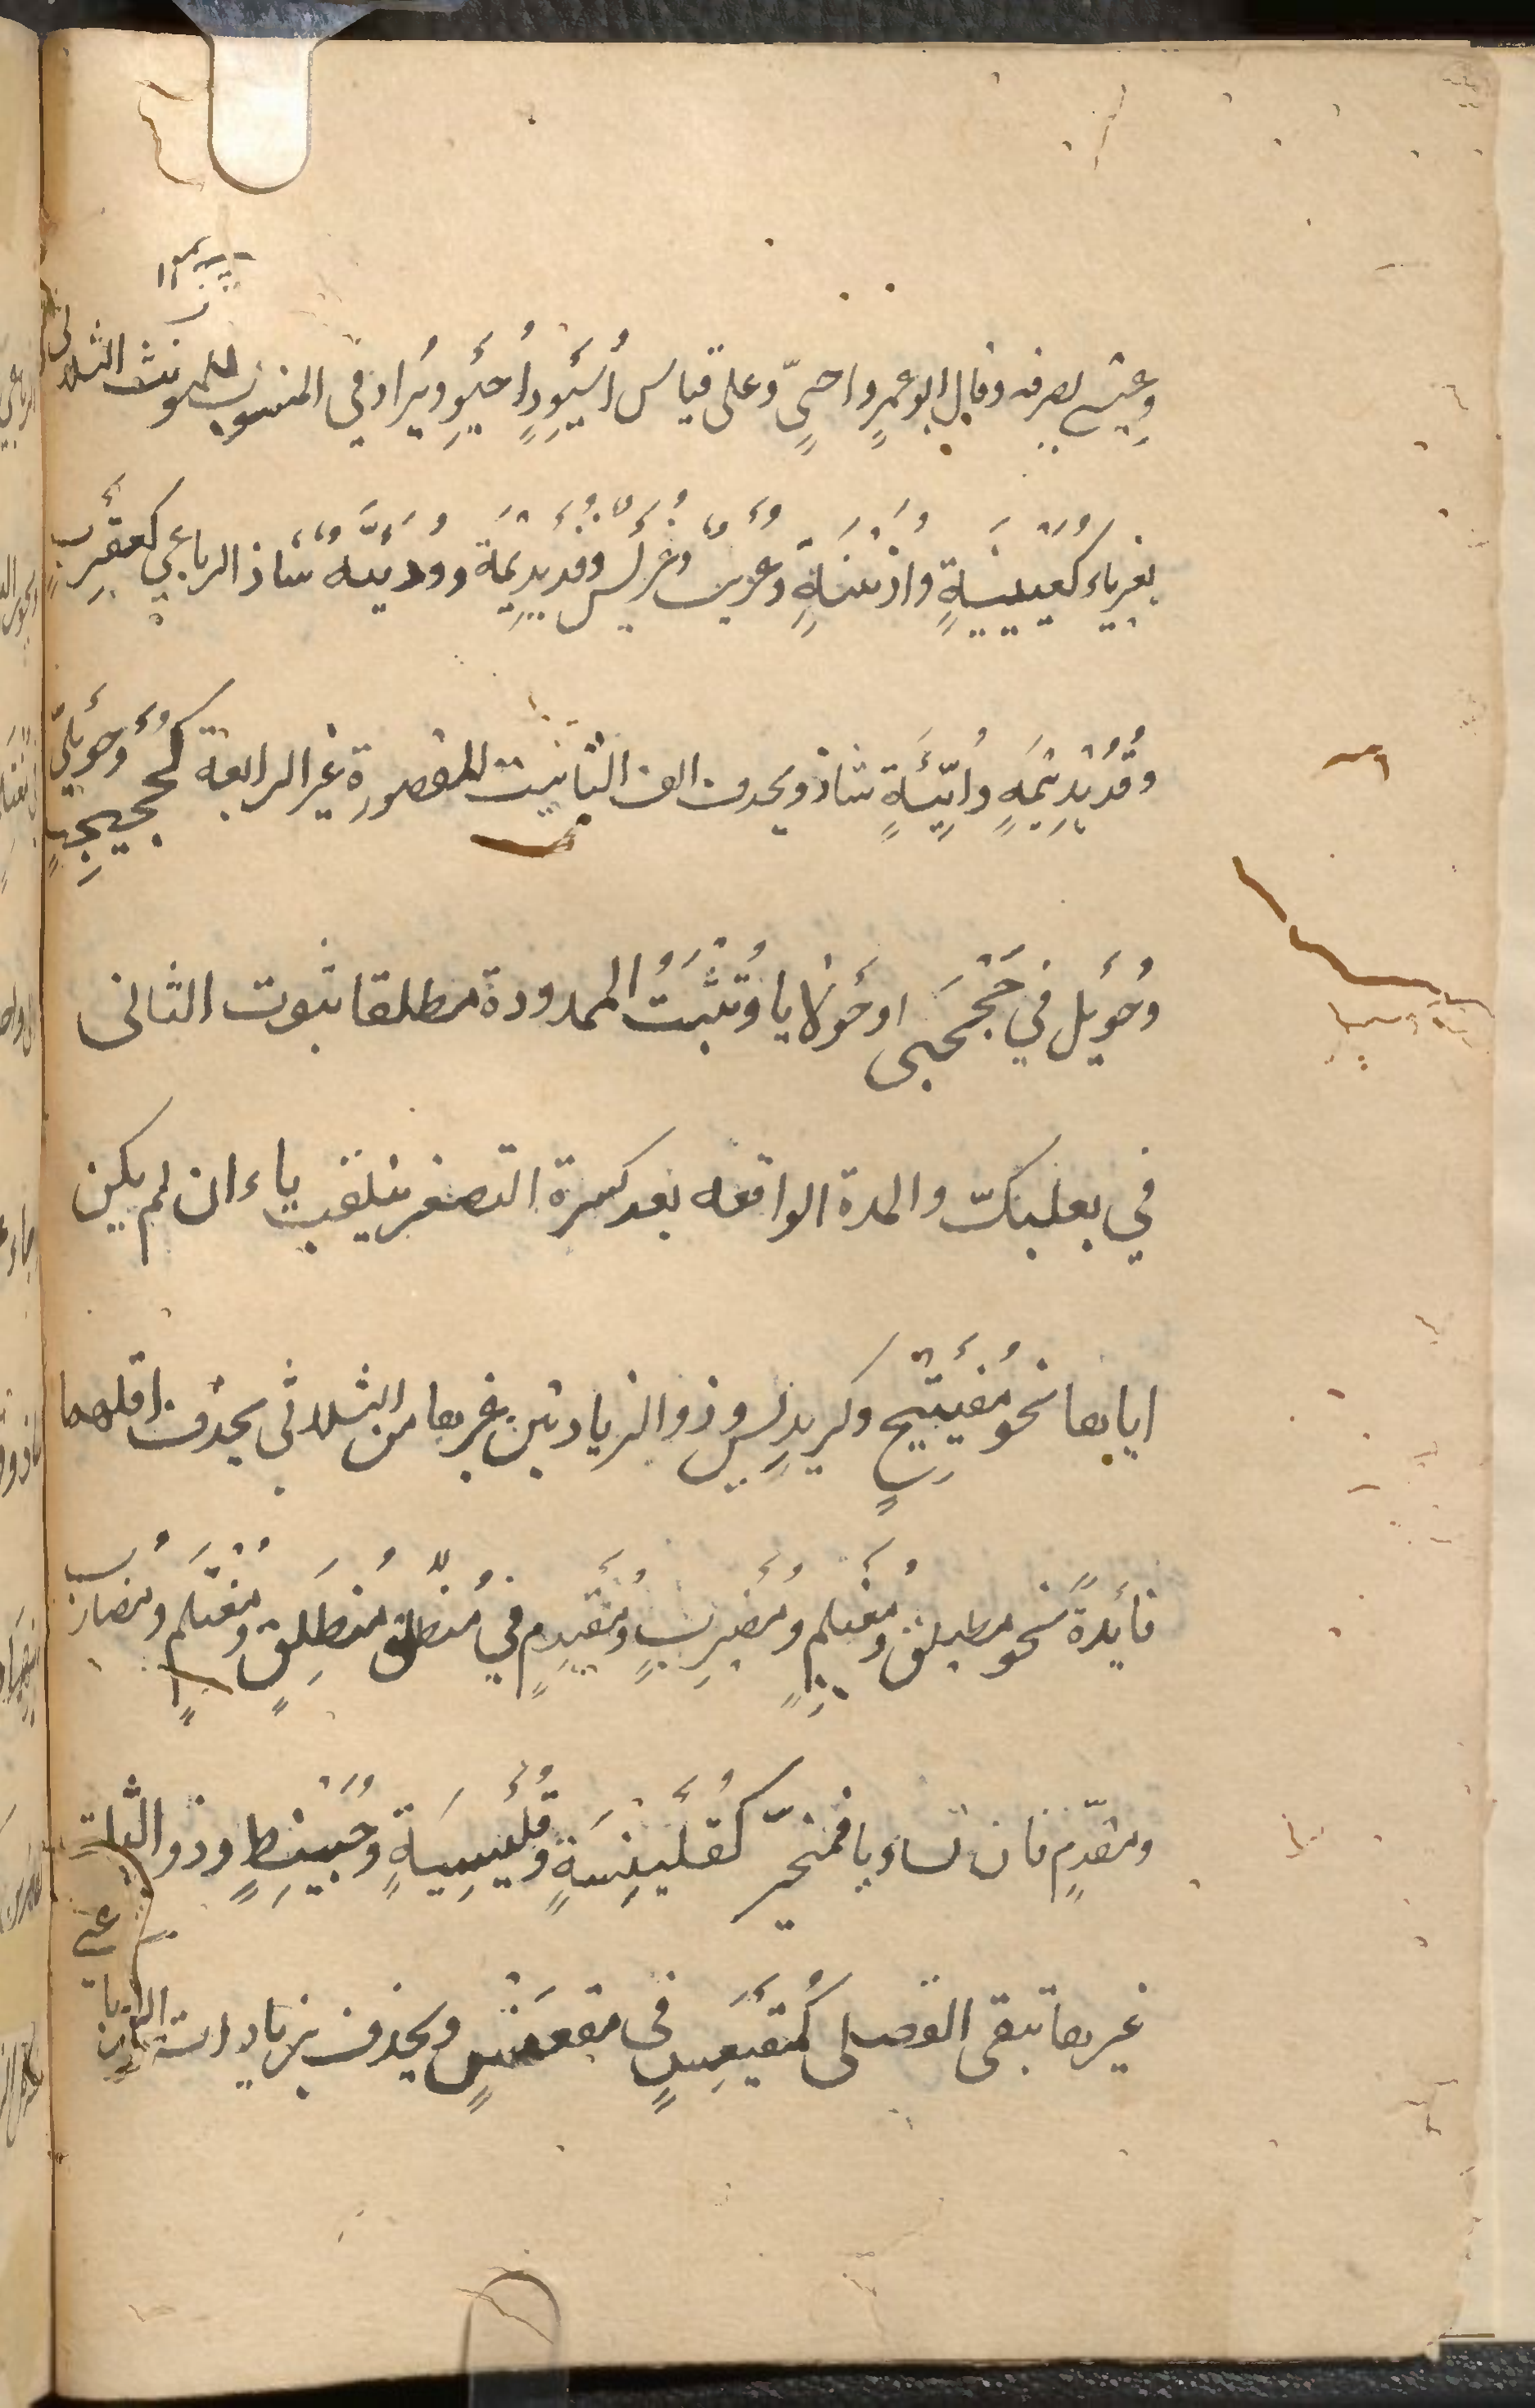 وعيسى يصرفه وقال ابو عمرو احيٍّ وعلى قياس أُسَيْوِدٍ أُحَيْوٍ ويزاد في المنسوب للمونث الثلاثى
بغير تاء كعُيَيْنَةٍ واُذَيْنَةٍ وعُرَيْبٌ وعُرَيْسٌ وقُدَيْدِيْمَة ووُرَيِّئَة شاذ الرباعي كعقيربٍ
وقُدَيْدِيْمَةٍ ووُرَيِّئَةٍ شاذ ويحذف الف التانيث المقصورة غير الرابعة كجحيجبٍ وحُوَيْلِيٍّ
وحُوَيْل في جَحْجَبى او حَوْلايا وتُثْبَتُ الممدودة مطلقا ثبوت الثانى
في بعلبكّ والمدة الواقعه بعد كسرة التصغير ينقلب ياء ان لم يكن
ايابها نحو مُفَيْتِيْحٍ وكريديس وذو الزيادتين غيرها من الثلاثى يحذف اقلهما
فائدةً نحو مطيلق ومُغَيْلِمٍ ومُضَيْرِبٍ ومُقَيْدِمٍ في مُنْطَلِقٍ ومُغْتَلِمٍ ومُضارِب
ومقدّمٍ فان تساويا فمخير كقُلَيْنِسَةٍ وقُلَيْسِيَةٍ وحُبَيْنِطٍ وذو الثلثة
غيرها تبقى الفضلى كمُقَيْعِسٍ فى مقعنسسٍ ويحذف زيادات